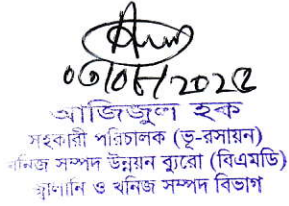 ০৩/০৮/২০২৫
আজিজুল হক
সহকারী পরিচালক (ভূ-রসায়ন)
খনিজ সম্পদ উন্নয়ন ব্যুরো (বিএমডি)
জ্বালানি ও খনিজ সম্পদ বিভাগ